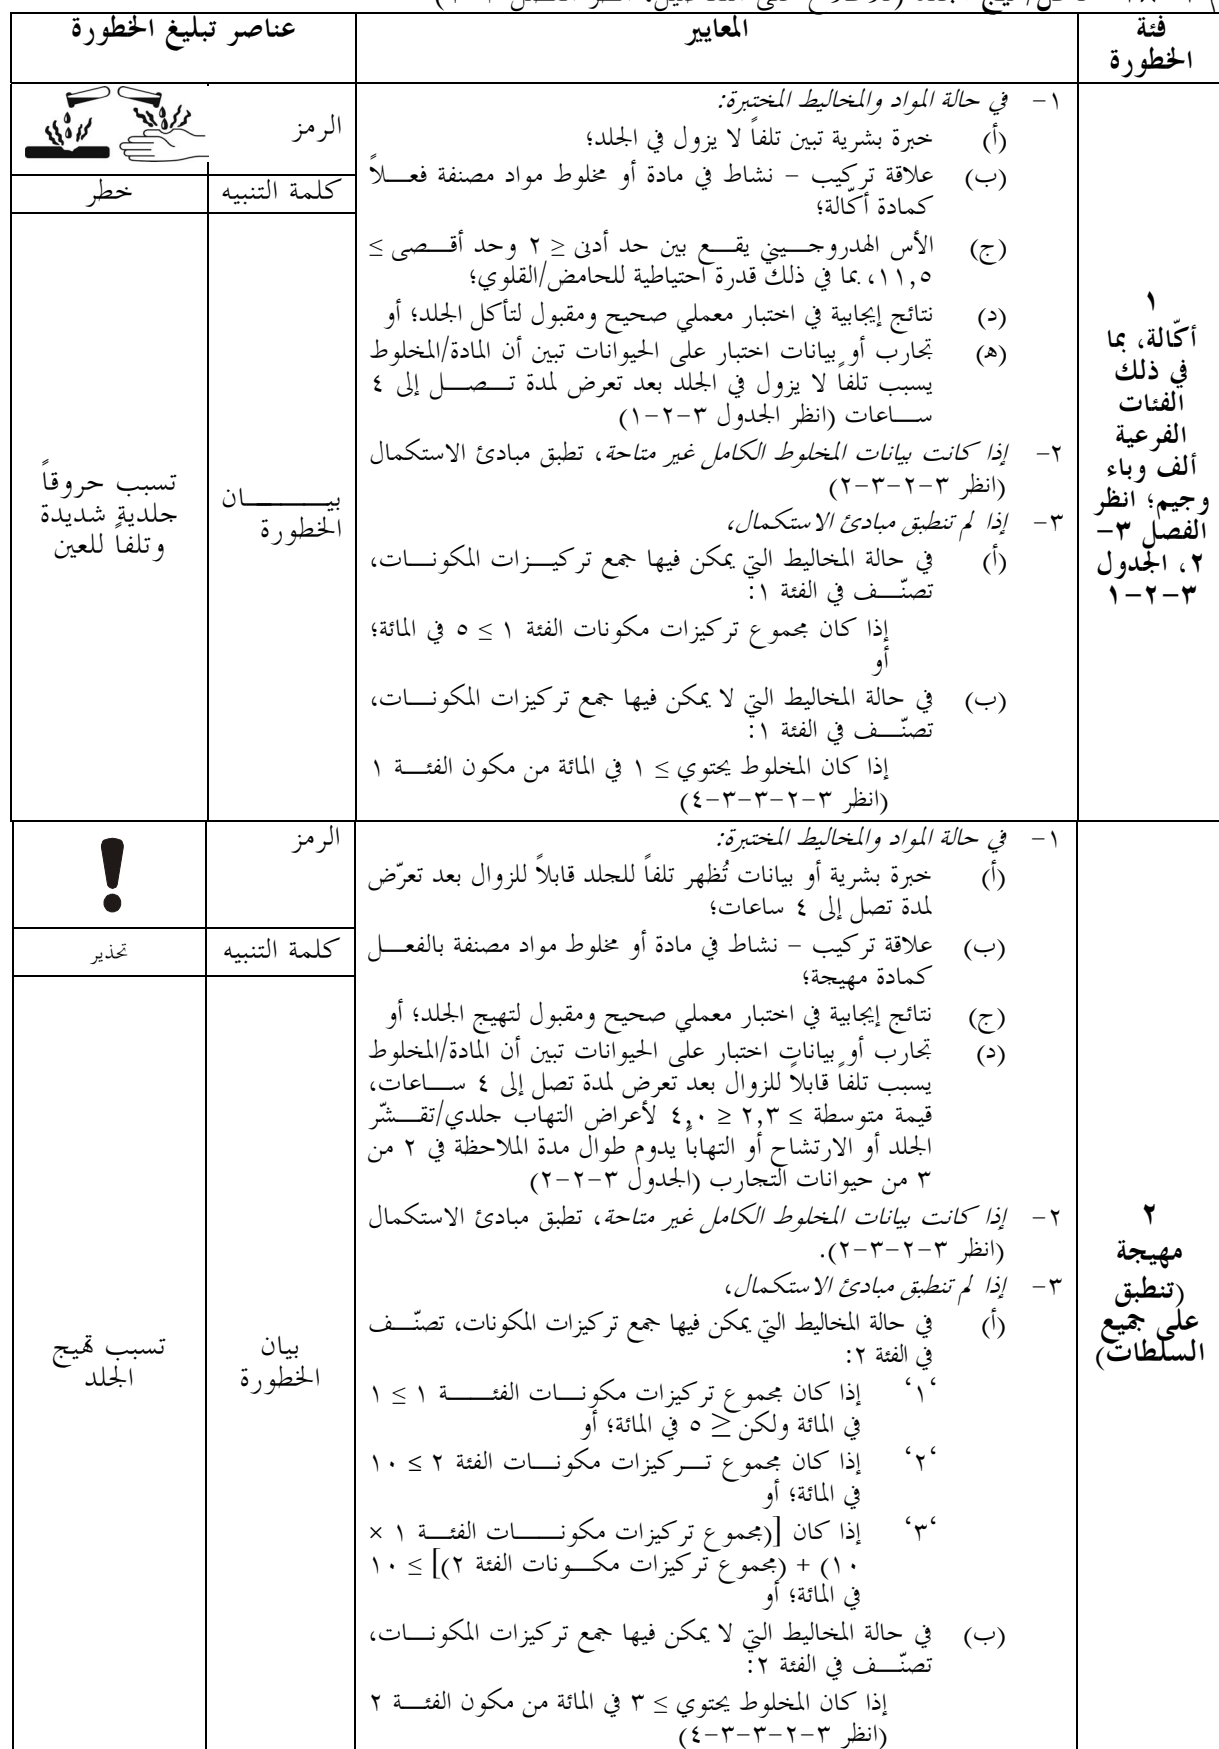 فئة الخطورة
المعايير
عناصر تبليغ الخطورة
١
أكّالة، بما
في ذلك
الفئات
الفرعية
ألف وباء
وجيم؛ انظر
الفصل ٣-
٢، الجدول
٣-٢-١
١- في حالة المواد والمخاليط المختبرة:
(أ) خبرة بشرية تبين تلفاً لا يزول في الجلد؛
(ب) علاقة تركيب - نشاط في مادة أو مخلوط مواد مصنفة فعلاً
كمادة أكّالة؛
(ج) الأس الهدروجيني يقع بين حد أدنى ≥ ٢ وحد أقصى ≤
١١,٥، بما في ذلك قدرة احتياطية للحامض/القلوي؛
(د) نتائج إيجابية في اختبار معملي صحيح ومقبول لتأكل الجلد؛ أو
(ه) تجارب أو بيانات اختبار على الحيوانات تبين أن المادة/المخلوط
يسبب تلفاً لا يزول في الجلد بعد تعرض لمدة تصل إلى ٤
ساعات (انظر الجدول ٣-٢-١)
٢- إذا كانت بيانات المخلوط الكامل غير متاحة، تطبق مبادئ الاستكمال
(انظر ٣-٢-٣-٢)
٣- إذا لم تنطبق مبادئ الاستكمال،
(أ) في حالة المخاليط التي يمكن فيها جمع تركيزات المكونات،
تصنّف في الفئة ١:
إذا كان مجموع تركيزات مكونات الفئة ١ ≤ ٥ في المائة؛
أو
(ب) في حالة المخاليط التي لا يمكن فيها جمع تركيزات المكونات،
تصنّف في الفئة ١:
إذا كان المخلوط يحتوي ≤ ١ في المائة من مكون الفئة ١
(انظر ٣-٢-٣-٣-٤)
الرمز
كلمة التنبيه
خطر
بيان
الخطورة
تسبب حروقاً
جلدية شديدة
وتلفاً للعين
٢
مهيجة
(تنطبق
على جميع
السلطات)
١- في حالة المواد والمخاليط المختبرة:
(أ) خبرة بشرية أو بيانات تُظهر تلفاً للجلد قابلاً للزوال بعد تعرّض
لمدة تصل إلى ٤ ساعات؛
(ب) علاقة تركيب - نشاط في مادة أو مخلوط مواد مصنفة بالفعل
كمادة مهيجة؛
(ج) نتائج إيجابية في اختبار معملي صحيح ومقبول لتهيج الجلد؛ أو
(د) تجارب أو بيانات اختبار على الحيوانات تبين أن المادة/المخلوط
يسبب تلفاً قابلاً للزوال بعد تعرض لمدة تصل إلى ٤ ساعات،
قيمة متوسطة ≤ ٢,٣ ≥ ٤,٠ لأعراض التهاب جلدي/تقشّر
الجلد أو الارتشاح أو التهاباً يدوم طوال مدة الملاحظة في ٢ من
٣ من حيوانات التجارب (الجدول ٣-٢-٢)
٢- إذا كانت بيانات المخلوط الكامل غير متاحة، تطبق مبادئ الاستكمال
(انظر ٣-٢-٣-٢).
٣- إذا لم تنطبق مبادئ الاستكمال،
(أ) في حالة المخاليط التي يمكن فيها جمع تركيزات المكونات، تصنّف
في الفئة ٢:
‘١‘ إذا كان مجموع تركيزات مكونات الفئة ١ ≤ ١
في المائة ولكن ≥ ٥ في المائة؛ أو
‘٢‘ إذا كان مجموع تركيزات مكونات الفئة ٢ ≤ ١٠
في المائة؛ أو
‘٣‘ إذا كان [(مجموع تركيزات مكونات الفئة ١ ×
١٠) + (مجموع تركيزات مكونات الفئة ٢)] ≤ ١٠
في المائة؛ أو
(ب) في حالة المخاليط التي لا يمكن فيها جمع تركيزات المكونات،
تصنّف في الفئة ٢:
إذا كان المخلوط يحتوي ≤ ٣ في المائة من مكون الفئة ٢
(انظر ٣-٢-٣-٣-٤)
الرمز
كلمة التنبيه
تحذير
بيان
الخطورة
تسبب تهيج
الجلد